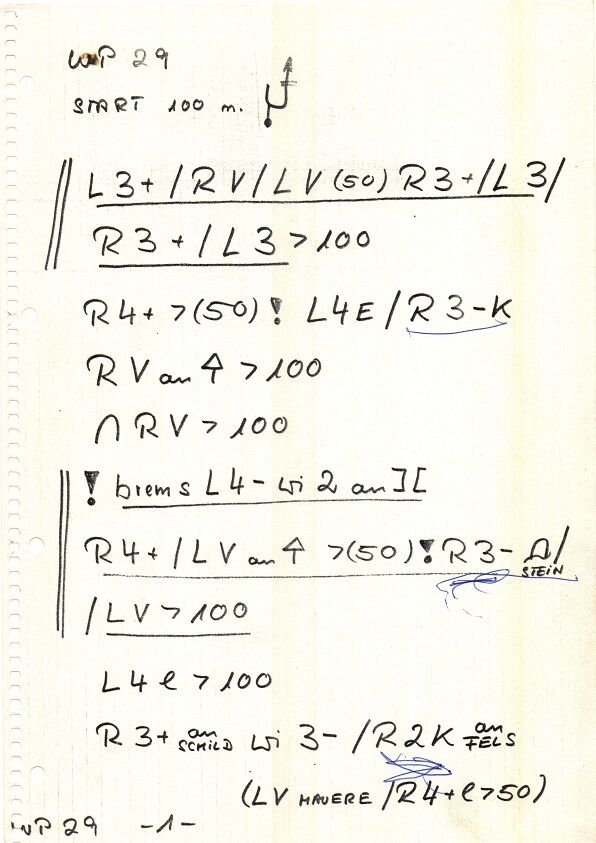 WP 29
START 100 m.
L3+/RV/LV(50) R3+/L3/
R3+/L3>100
R4+>(50)! L4E/R3-K
RV an ↑ >100
∩ RV>100
! brems L4- wi 2 an ][
R4+/LV an ↑ >(50)! R3- Ω/
STEIN
/LV>100
L4l>100
R3+ an SCHILD wi 3-/R2K an FELS
(LV MAUERE/R4+l>50)
WP 29 -1-